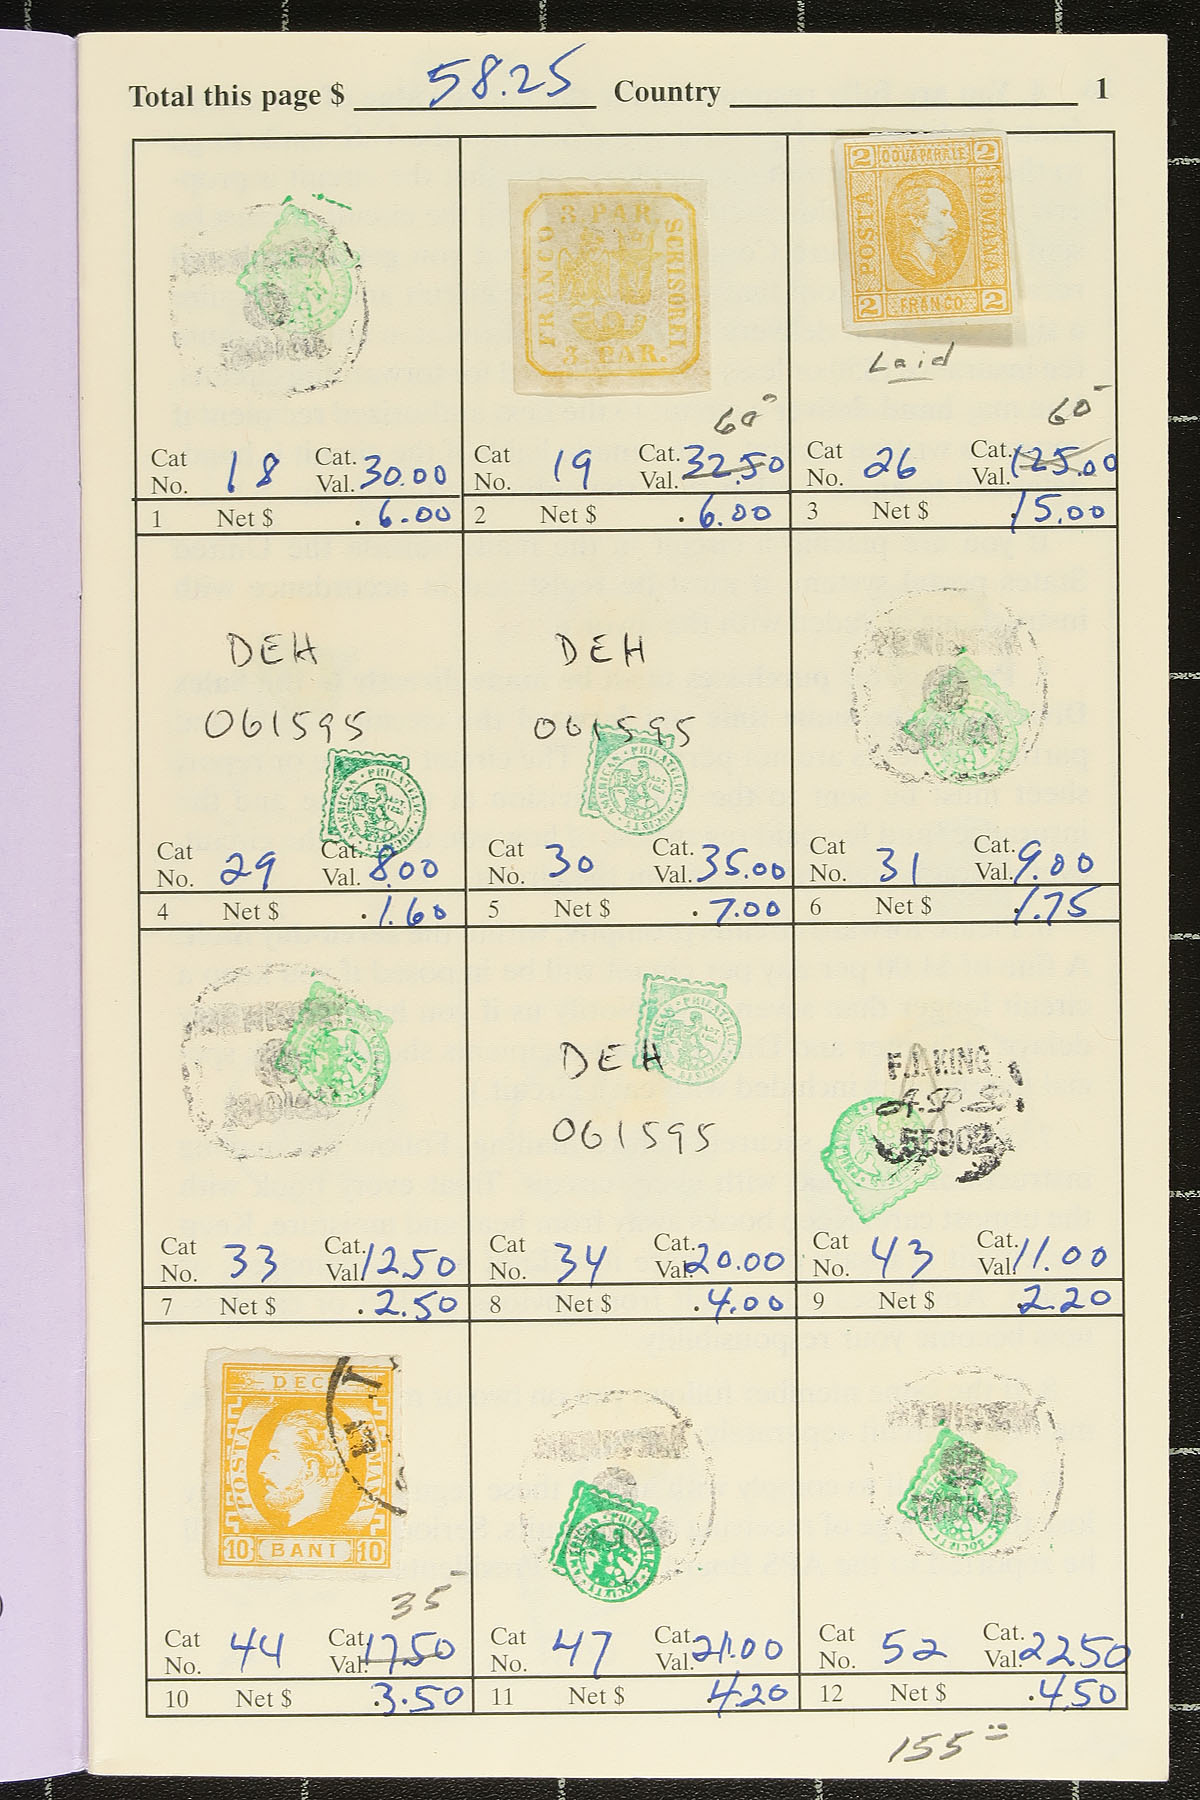 Total this page $ 58.25 Country 1
3 PAR.
FRANCO
SCRISOREI
3 PAR.
2 DOUA PARALE 2
POSTA
ROMANA
2 FRANCO 2
Laid
60
60
Cat No. 18 Cat. Val. 30.00
1 Net $ 6.00
Cat No. 19 Cat. Val. 32.50
2 Net $ 6.00
Cat No. 26 Cat. Val. 125.00
3 Net $ 15.00
DEH
061595
AMERICAN PHILATELIC SOCIETY
Cat No. 29 Cat. Val. 8.00
4 Net $ 1.60
DEH
061595
AMERICAN PHILATELIC SOCIETY
Cat No. 30 Cat. Val. 35.00
5 Net $ 7.00
Cat No. 31 Cat. Val. 9.00
6 Net $ 1.75
Cat No. 33 Cat. Val. 12.50
7 Net $ 2.50
DEH
061595
Cat No. 34 Cat. Val. 20.00
8 Net $ 4.00
F.J. KING
A.P.S.
55902
Cat No. 43 Cat. Val. 11.00
9 Net $ 2.20
DECI
POSTA
MANA
10 BANI 10
35
Cat No. 44 Cat. Val. 17.50
10 Net $ 3.50
AMERICAN PHILATELIC SOCIETY
Cat No. 47 Cat. Val. 21.00
11 Net $ 4.20
Cat No. 52 Cat. Val. 22.50
12 Net $ 4.50
155